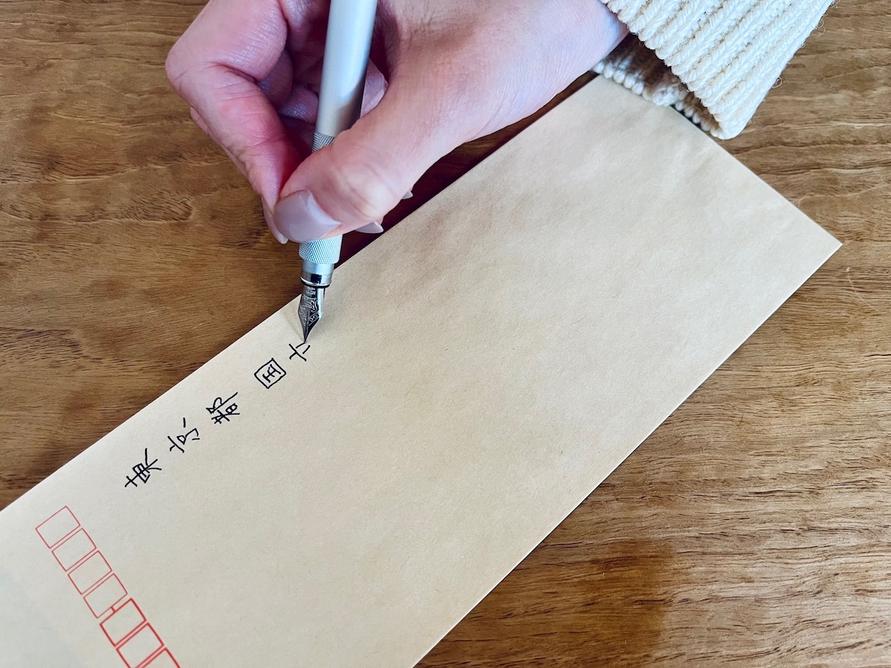 東京都国